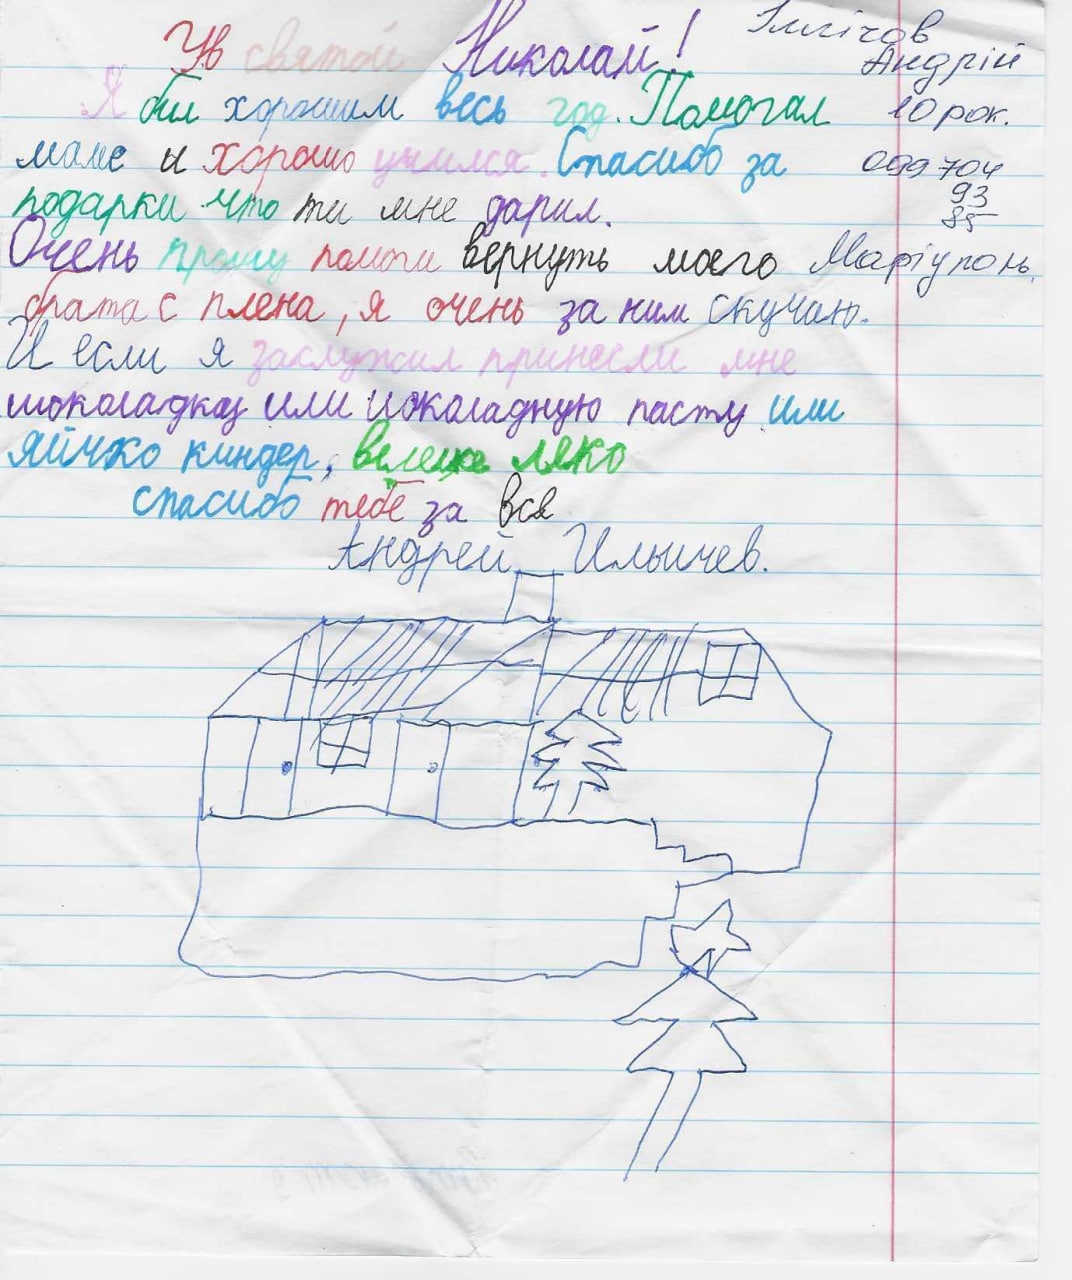 Ув святой Николай!
Ілліčов
Андрій
Я бил хорошим весь год. Помогал
10 рок.
маме и хорошо учился. Спасибо за
099 704
93
85
подарки что ти мне дарил.
Очень прошу помоги вернуть моего
Маріуполь.
брата с плена, я очень за ним скучаю.
И если я заслужил принесли мне
шоколадку или шоколадную пасту или
яйчко киндер,
спасибо тебе за все
Андрей Ильичев.